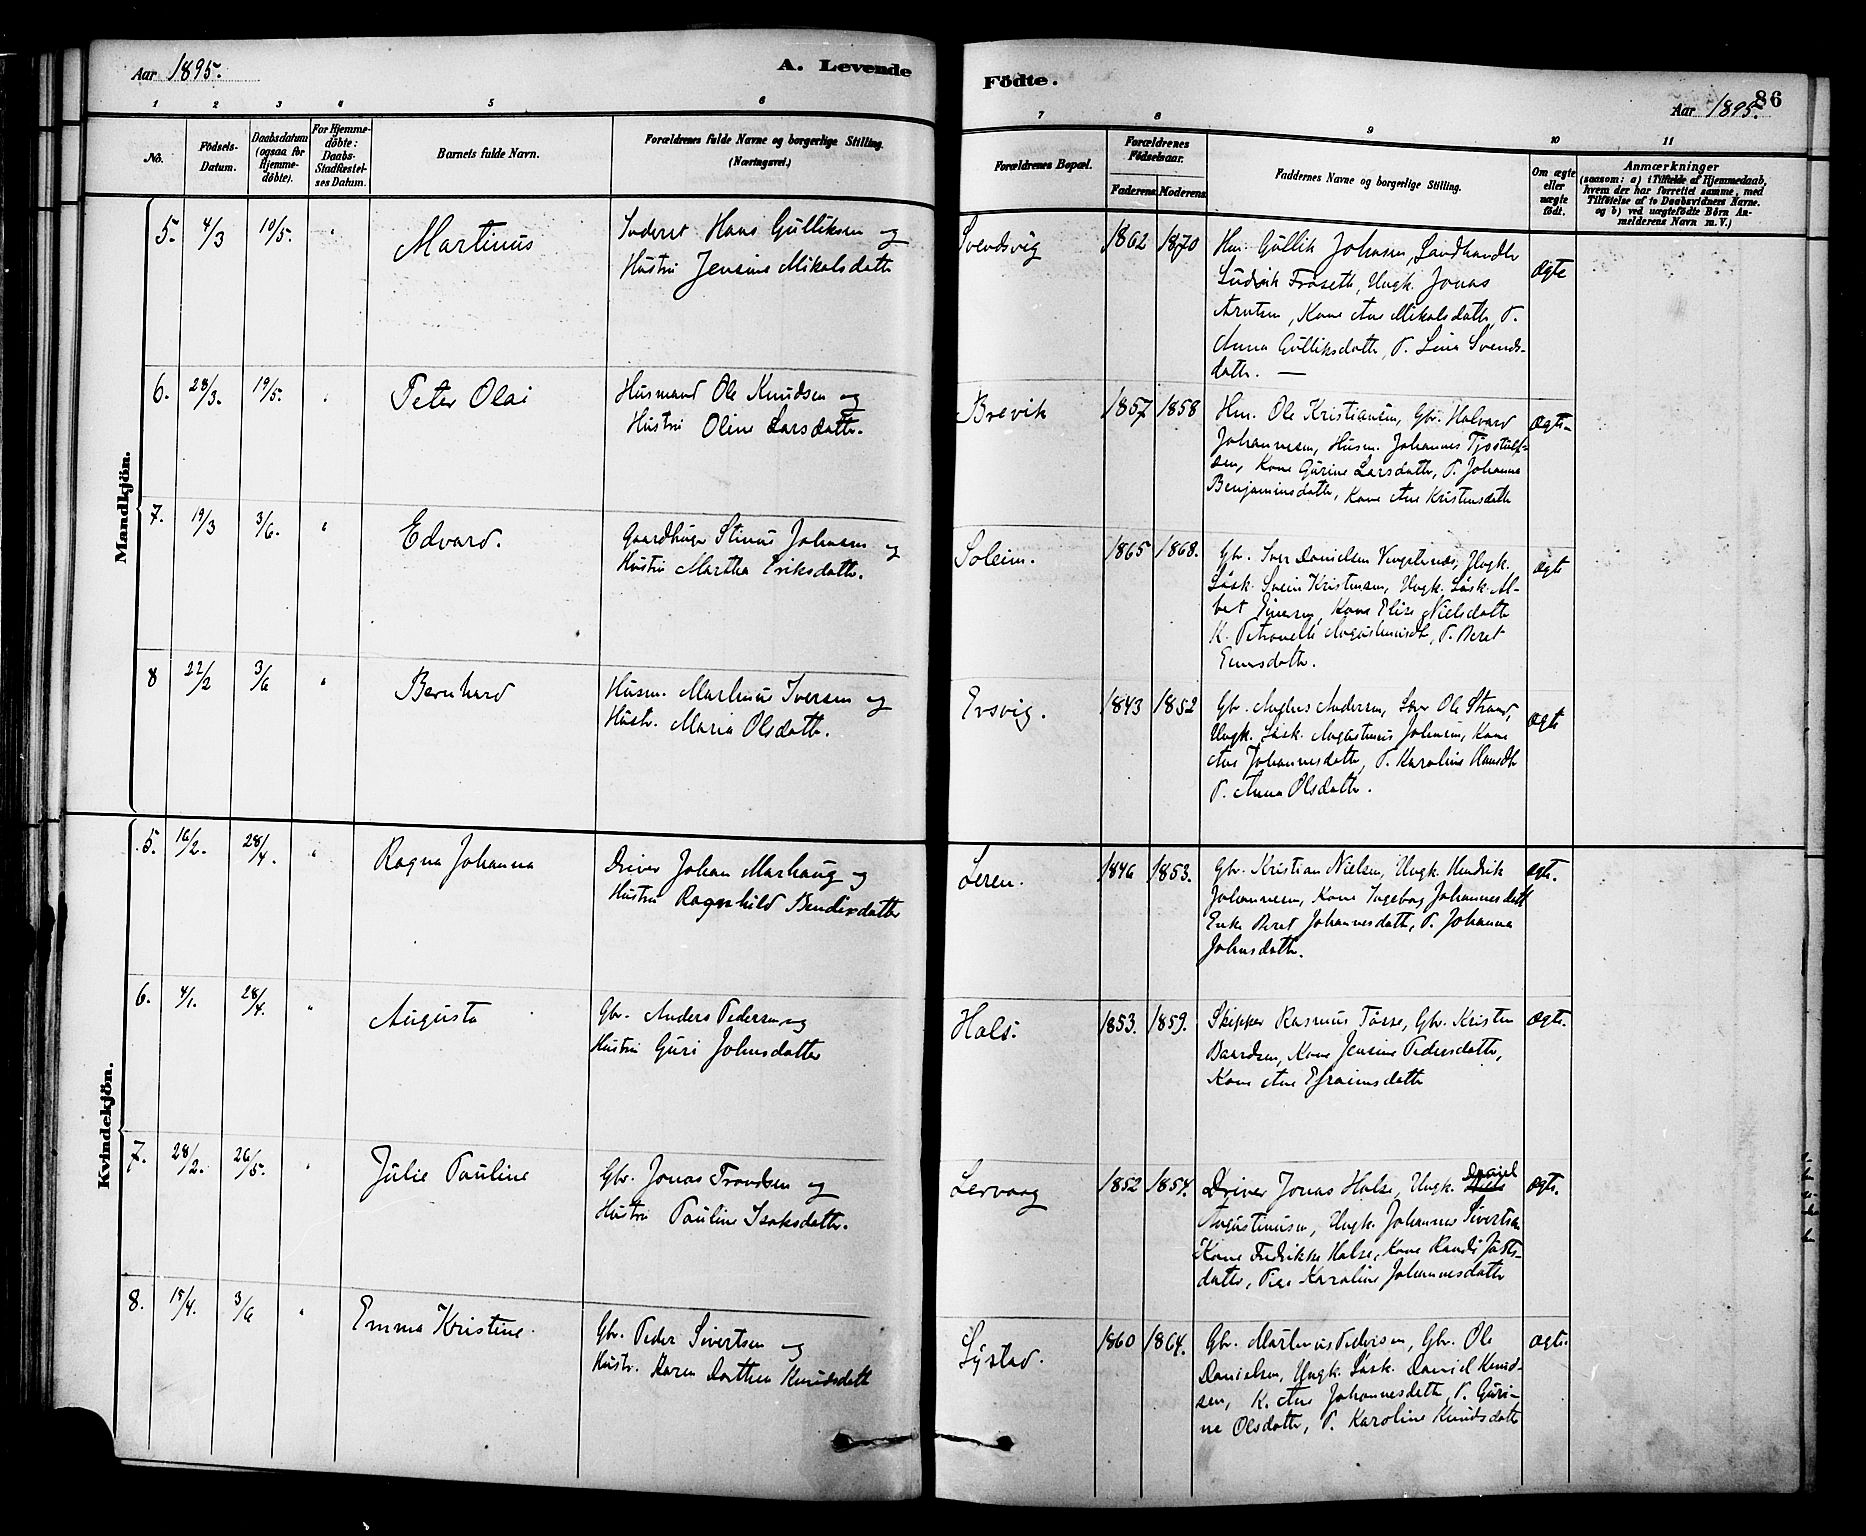 Aar 1895.
A. Levende
Födte.
86
Aar 1895.
1 2 3 4 5 6 7 8 9 10 11
No.
Födsels-
Datum.
Daabsdatum
(ogsaa for
Hjemme-
döbte).
For Hjemme-
döbte:
Daabs-
Stadfæstel-
ses Datum.
Barnets fulde Navn.
Forældrenes fulde Navne og borgerlige Stilling.
(Næringsvei.)
Forældrenes Bopæl.
Forældrenes
Födselsaar.
Faderens Moderens
Faddernes Navne og borgerlige Stilling.
Om ægte
eller
uægte
født.
Anmærkninger
(saasom: a) i Tilfælde af Hjemmedaab,
hvem der har forrettet samme, med
Tilføielse af to Daabsvidners Navne.
og b) ved uægtefödte Börn An-
melderens Navn m. V.)
Mandkjön.
5. 4/3 10/5. " Martinus
Inderst Hans Gulliksen og
Hustru Jensine Mikalsdatter
Svendsvig 1862 1870
Hm. Gullik Johnsen, Landhandler
Ludvik Fröseth, Ungk. Jonas
Arntsen, Kone Ane Mikalsdatter, P.
Anna Gulliksdatter, P. Lina Svends-
datter. —
Ægte
6. 28/3. 19/5. " Peter Olai
Husmand Ole Knudsen og
Hustru Oline Larsdatter.
Brevik 1857 1858
Hm. Ole Kristiansen, Gbr. Halvard
Johannesen, Husm. Johannes Tjostolf-
sen, Kone Gurine Larsdatter, P. Johanna
Benjaminsdatter, Kone Ane Kristensdatter
Ægte
7. 19/3 3/6. " Edvard.
Gaardbruger Stinus Johansen og
Hustru Martha Eriksdatter.
Soleim. 1865 1868.
Gbr. Danielsen Ungk.
Løsk. Svein Kristensen, Ungk. Løsk. Al-
bert Einersen, Kone Elise Nielsdatter
K. Petronelle P. Beret
Einersdatter.
Ægte
8 22/2 3/6 " Bernhard
Husm. Martinus Iversen og
Hustr. Maria Olsdatter.
Ersvig. 1843 1852
Gbr. Anders Andersen, Lærer Ole Strand,
Ungk. Løsk. Augustinus Johnsen, Kone
Ane Johannesdatter, P. Karoline Hansdtr
P. Anna Olsdatter.
Ægte
Kvindekjön.
5. 16/2. 28/4. " Ragna Johanna
Driver Johan Marhaug og
Hustru Ragnhild Bendixdatter
Leren. 1846 1853.
Gbr. Kristian Nielsen, Ungk. Hendrik
Johannesen, Kone Ingeborg Johannesdatt
Enke Beret Johannesdatter, P. Johanna
Johnsdatter.
Ægte.
6. 4/1. 28/4. " Augusta
Gbr. Anders Pedersen og
Hustru Guri Johnsdatter
Hals. 1853. 1859.
Skipper Rasmus Tørse, Gbr. Kristen
Baardsen, Kone Jensine Pedersdatter,
Kone Ane Efraimsdatter
Ægte.
7. 28/2. 26/5. " Julie Pauline
Gbr. Jonas Trondsen og
Hustru Pauline Isaksdatter.
Lervaag 1852 1854.
Driver Jonas Halse, Ungk. Daniel
Augustinusen, Ungk. Johannes Sivertsen
Kone Fredrikke Halse, Kone Randi Jakobs-
datter, Pige Karoline Johannesdatter
Ægte.
8. 15/4. 3/6 " Emma Kristine.
Gbr. Peder Sivertsen og
Hustr. Karen Dorthea Knudsdatt
Systad. 1860 1864.
Gbr. Martinus Pedersen, Gbr. Ole
Danielsen, Ungk. Løsk. Daniel Knud-
sen, K. Ane Johannesdatter, P. Guri-
ne Olsdatter, P. Karoline Knudsdatter
Ægte.